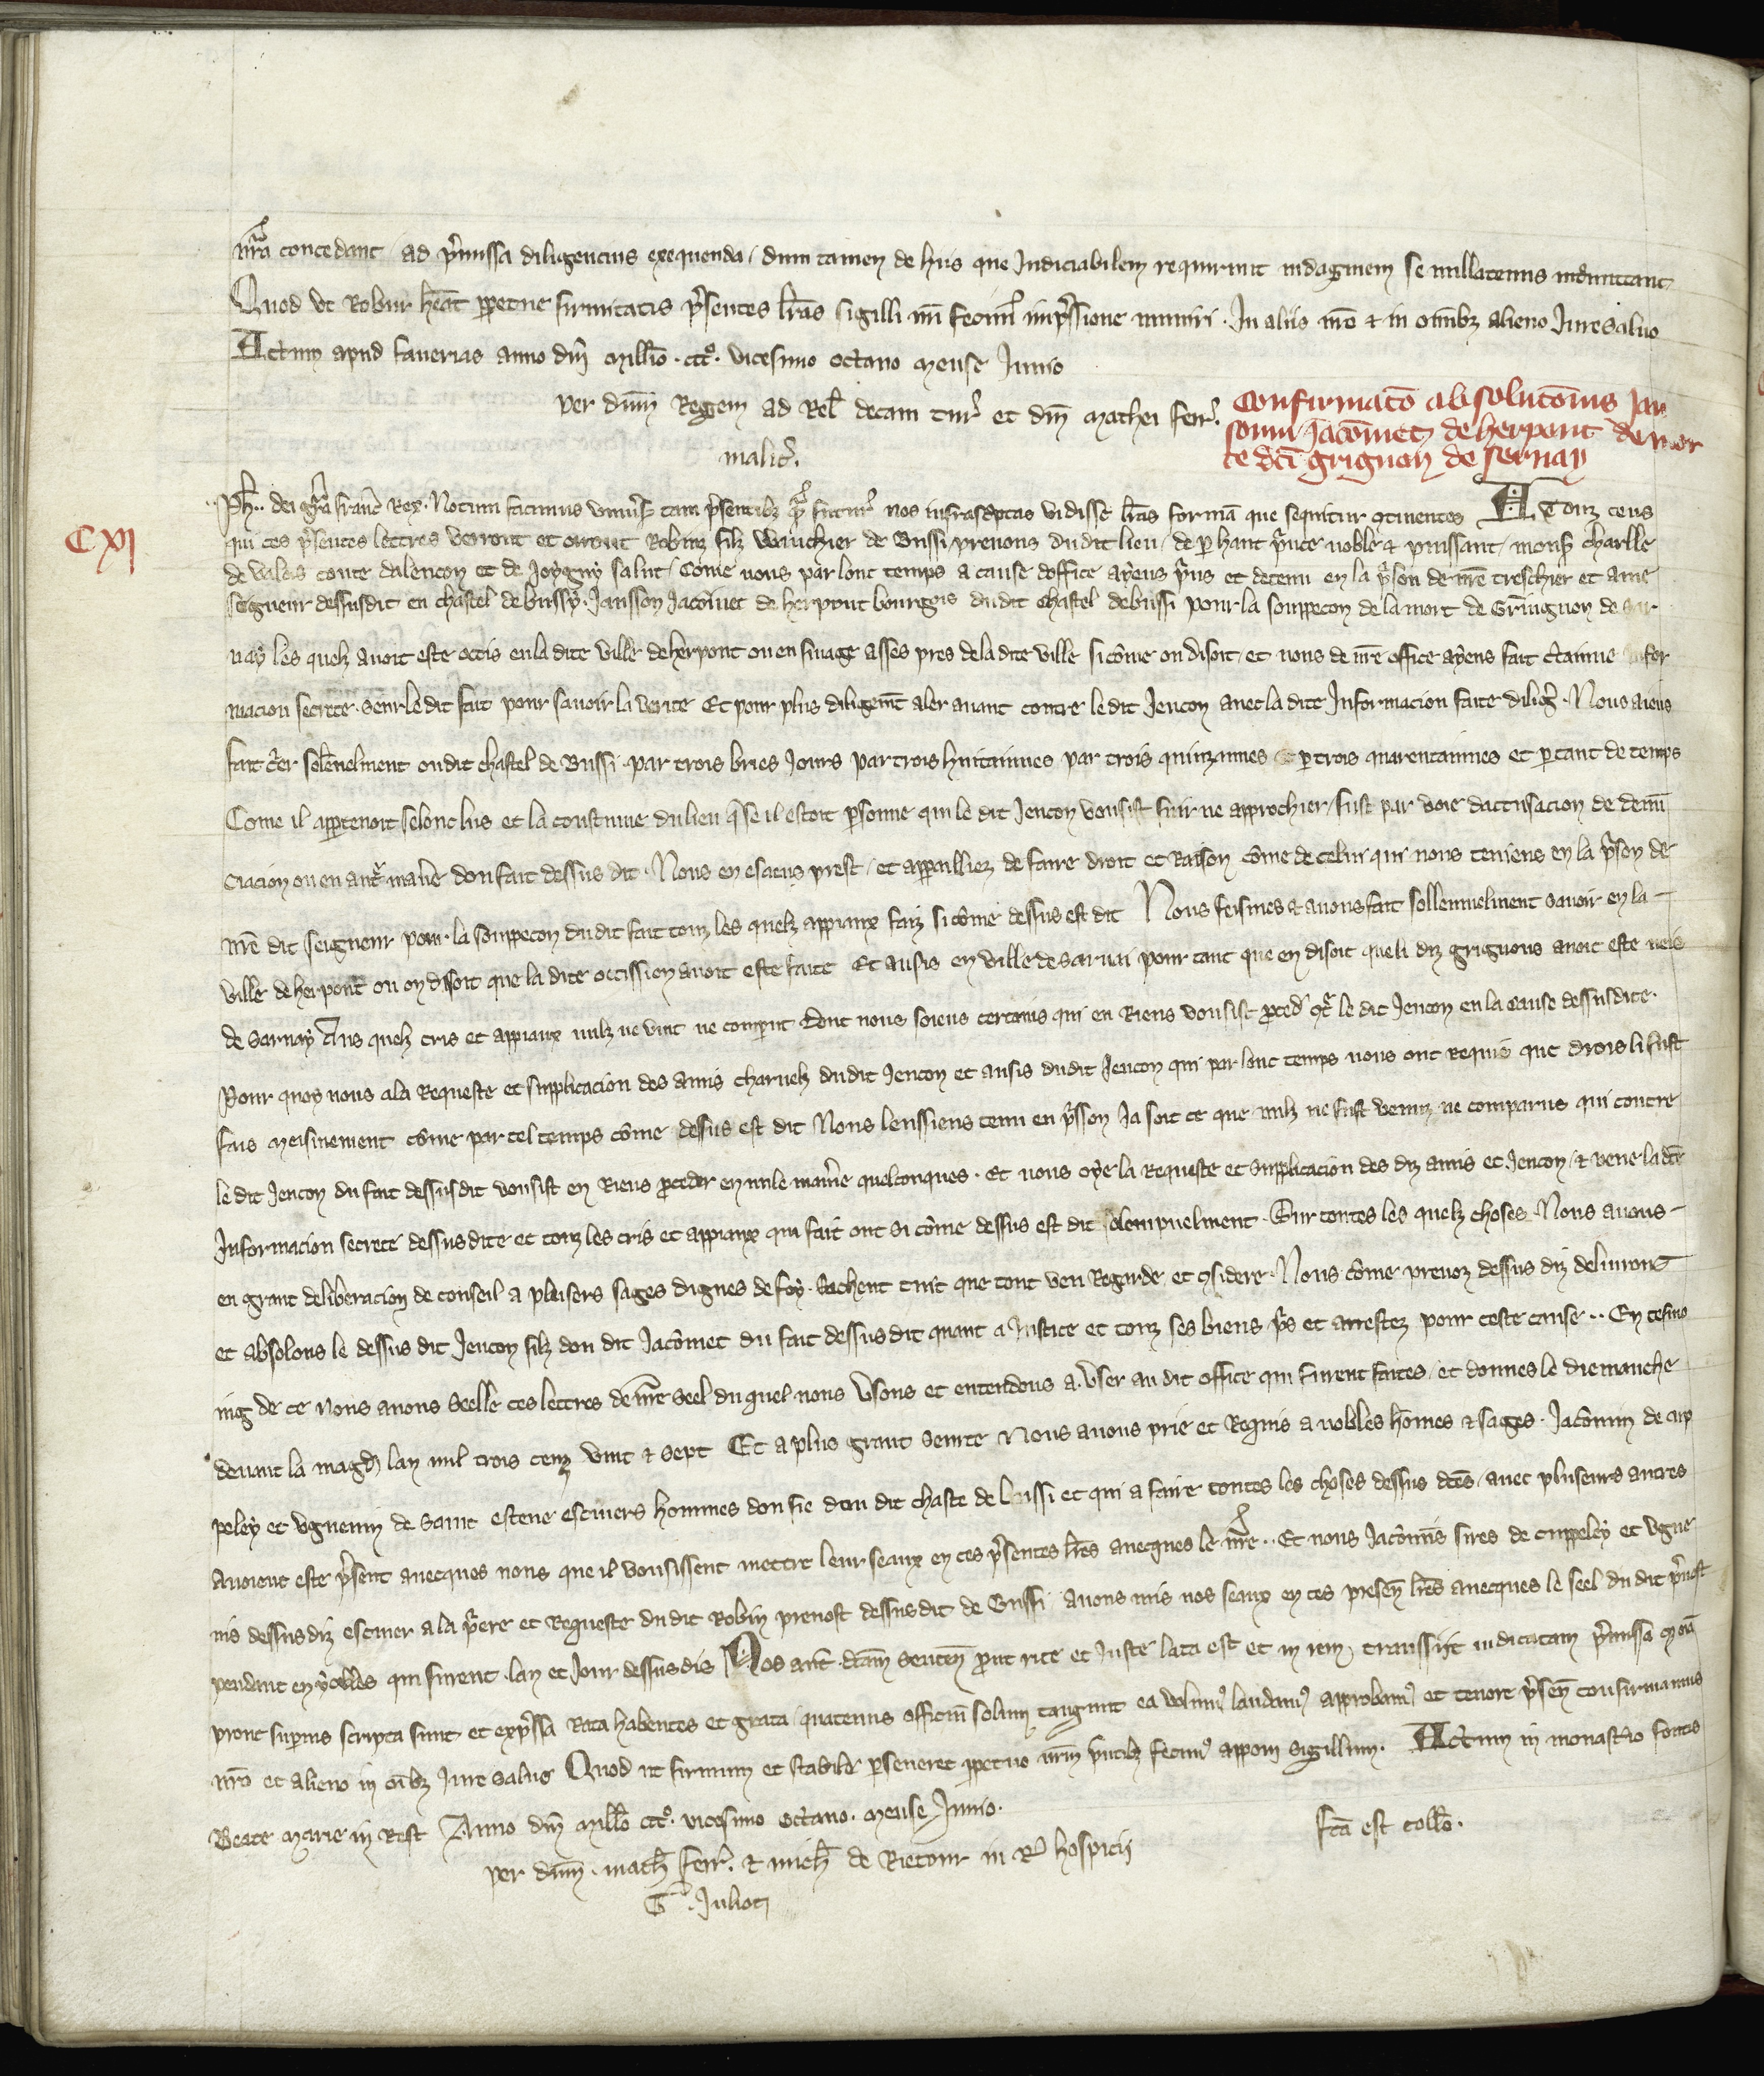 nr̃a concedant / ad p̃missa diligencius exequenda / dum tamen de hiis que Judiciabilem requirunt indaginem se nullatenus intromittant
Quod ut Robur heãt ppetue firmitatis p̃sentes lr̃as sigilli nr̃i fecim⁹ imp̃ssione muniri . In aliis nr̃o & in omĩbz alieno Jure saluo
Actum apud fauerias anno dñi Mill̃io . ccc⁰ . vicesimo octauo mense Junio
per dñm Regem ad Rel̃ decani tur̃ et dñi Mathei ferr̃.
malic̃.
Confirmatõ absolutõnis Jan
sonni Jacõmet de herpont de mor
te dc̃i grignon de sernay
CXI
Ph̃ . . dei gr̃a franc̃ Rex . Notum facimus uniũs̃ tam p̃sentibz q̃ futur̃ nos infrasc̃ptas vidisse lr̃as formã que sequitur 9tinentes A touz ceus
qui ces p̃sentes lettres verront et orront Robinz filz Wauchier de Bussi / preuous du dit lieu / de p hant p̃nce noble & puissant / mons̃ Charlle
de valois conte dalencon et de Joygny salut / Cõme nous par lonc temps a cause doffice ayens p̃ns et detenu en la p̃son de nr̃e treschier et ame
seigneur dessusdit en chastel de bussy . Jansson Jacõmet de herpont bourgois du dit chastel de bussi pour la souppecon de la mort de Gringnon de Sar
nay les quelz auoit este occis en la dite ville de herpont ou en finage asses pres de la dite ville si cõme on disoit / et nous de nr̃e office ayens fait c̃tainne Jnfor
macion secrete . seur le dit fait pour sauoir la verite Et pour plus diligem̃t aler auant contre le dit Jencon auec la dite Informacion faite dilig̃ . Nous aiens
fait c̃er solẽnelment ou dit chastel de Bussi . par trois bries Jours par trois huitainnes par trois quinzainnes et p trois quarentainnes et p tant de temps
Come il appartenoit selonc lus et la coustume du lieu q̃ se il estoit p̃sonne qui le dit Jencon vousist suir ne approchier / fust par voie daccusacion de denũ
ciacion ou en autr̃ manĩe dou fait dessus dit . Nous en esciens prest / et apparilliez de faire droit et Raison cõme de celui que nous teniens en la p̃son de
nr̃e dit seigneur pour la souppecon du dit fait touz les quelz appiaux faiz si cõme dessus est dit Nous feismes & auons fait sollennelment sauoir en la
ville de herpont ou on disoit que la dite occission auoit este faite Et ausis en ville de Sarnai pour tant que en disoit que li diz grignons auoit este neis
de Sarnay Aus quelz cris et appiaux nulz ne vint ne comput dont nous soiens certains qui en Riens vousist p̃ced̃ 9tr̃ le dit Jencon en la cause dessusdite .
Pour quoy nous a la Requeste et supplicacion des amis charnelz du dit Jencon et ausis du dit Jencon qui par lonc temps nous ont Requis que drois li fust
fais meismement cõme par tel temps cõme dessus est dit Nous leussiens tenu en p̃sson Ja soit ce que nulz ne fust venuz ne comparus qui contre
le dit Jencon du fait dessusdit vousist en Riens proceder en nule manĩe quelconques . Et nous oye la Requeste et supplicacion des diz amis et Jencon / & veue la dc̃e
Informacion secrete dessusdite et touz les cris et appiaux qui fait ont si cõme dessus est dit solempnelment . Sur toutes les quelz choses . Nous auons
en grant deliberacion de conseil a pluisers sages dignes de foy . Sachent tuit que tout veu Regarde et 9sidere . Nous cõme preuoz dessus diz deliurons
et absolons le dessus dit Jencon filz dou dit Jacõmet du fait dessusdit quant a Justice et touz ses biens p̃s et arrestez pour ceste cause . . En tesmo
ing de ce nous auons seelle ces lettres de nr̃e seel du quel nous vsons et entendons a vser au dit office qui furent faites / et donnes le diemanche
deuant la magd̃ lan mil trois cenz vint & sept Et a plus grant seurte Nous auons prie et Requis a nobles hõmes & sages . Jacõmin de cup
peley et vguenin de Saint estene escuiers hommes dou fie dou dit chaste de bussi et qui a faire toutes les choses dessus dc̃es / auec pluseurs autres
auoient este p̃sent auecques nous que il vousissent mettre leur seaux en ces p̃sentes lr̃es auecques le nr̃e . . Et nous Jacõmis sires de cuppeley et vgue
nis dessusdiz escuier a la p̃ere et Requeste du dit Robin preuost dessusdit de Bussi auons mis nos seaux en ces presen̄ lr̃es auecques le seel du dit p̃uost
pendant en ycelles qui furent . lan et Jour dessusdis Nos aut̃ . dc̃am senten̄ p̃ut rite et Juste lata est et in rem transsijt iudicatam p̃missa om̃ia
prout superius scripta sunt et exp̃ssa Rata habentes et grata / quatenus officiũ solum tangunt ea volum⁹ laudam⁹ approbam⁹ et tenore p̃sen̄ confirmamus
nr̃o et alieno in oĩbz Jure saluo Quod ut firmum et stabile p̃seueret ppetuo nr̃m p̃ntibz fecim⁹ apponi sigillum . Actum in monast̃io fontis
Beate Marie in Rest Anno dñi Mill̃o ccc⁰ . vicesimo octauo . mense Junio .
fc̃a est coll̃o .
per dñm . math̃ ferr̃ . & mich̃ de Riccour in R̃ hospicij
G . Juliot